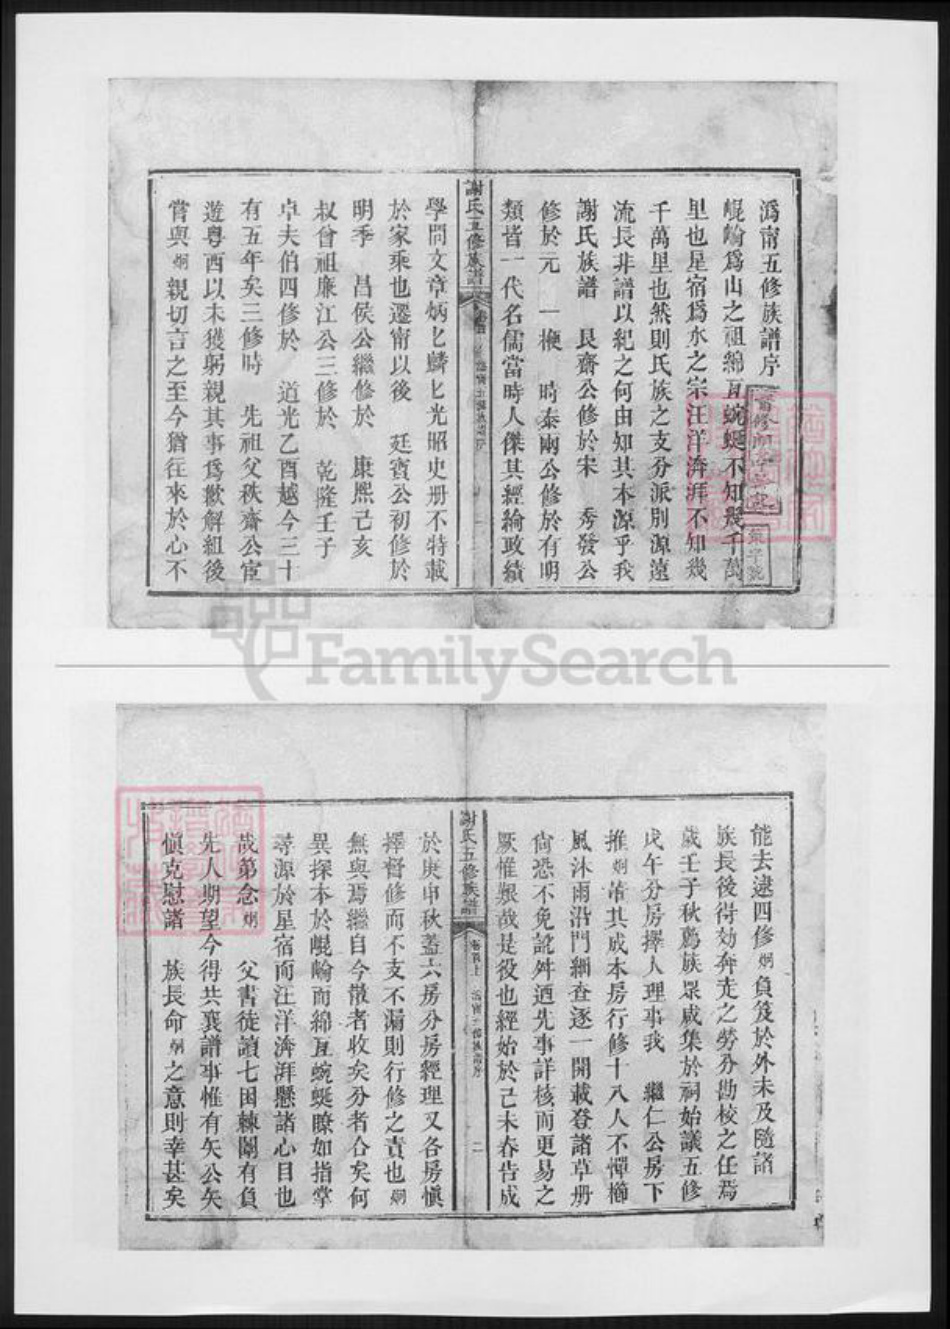 溈甯五修族譜序
崐崘爲山之祖綿亙蜿蜒不知幾千萬
里也星宿爲水之宗汪洋渀湃不知幾
千萬里也然則氏族之支分派別源遠
流長非譜以紀之何由知其本源乎我
謝氏族譜 艮齋公修於宋 秀發公
修於元 一 時泰兩公修於有明
類皆一代名儒當時人傑其經綸政績
謝氏五修族譜
學問文章炳匕麟匕光昭史册不特載
於家乘也遷甯以後 廷賓公初修於
明季 昌侯公繼修於 康熈己亥
叔曾祖廉江公三修於 乾隆壬子
卓夫伯四修於 道光乙酉越今三十
有五年矣三修時 先祖父秩齋公宦
遊粵西以未獲躬親其事爲歉解組後
嘗與炯親切言之至今猶往來於心不
能去逮四修炯負笈於外未及隨諸
族長後得効奔走之勞分勘校之任焉
歲壬子秋薦族衆咸集於祠始議五修
戊午分房擇人理事我 繼仁公房下
推炯董其成本房行修十八人不憚櫛
風沐雨沿門細查逐一開載登諸草册
尙恐不免訛舛迺先事詳核而更易之
厥惟艱哉是役也經始於己未春告成
謝氏五修族譜
卷首上
二
於庚申秋蓋六房分房經理又各房愼
擇督修而不支不漏則行修之責也炯
無與焉繼自今散者收矣分者合矣何
異探本於崐崘而綿亙蜿蜒瞭如指掌
尋源於星宿而汪洋渀湃懸諸心目也
哉第念炯 父書徒讀七困棘闈有負
先人期望今得共襄譜事惟有矢公矢
愼克慰諸 族長命炯之意則幸甚矣
FamilySearch